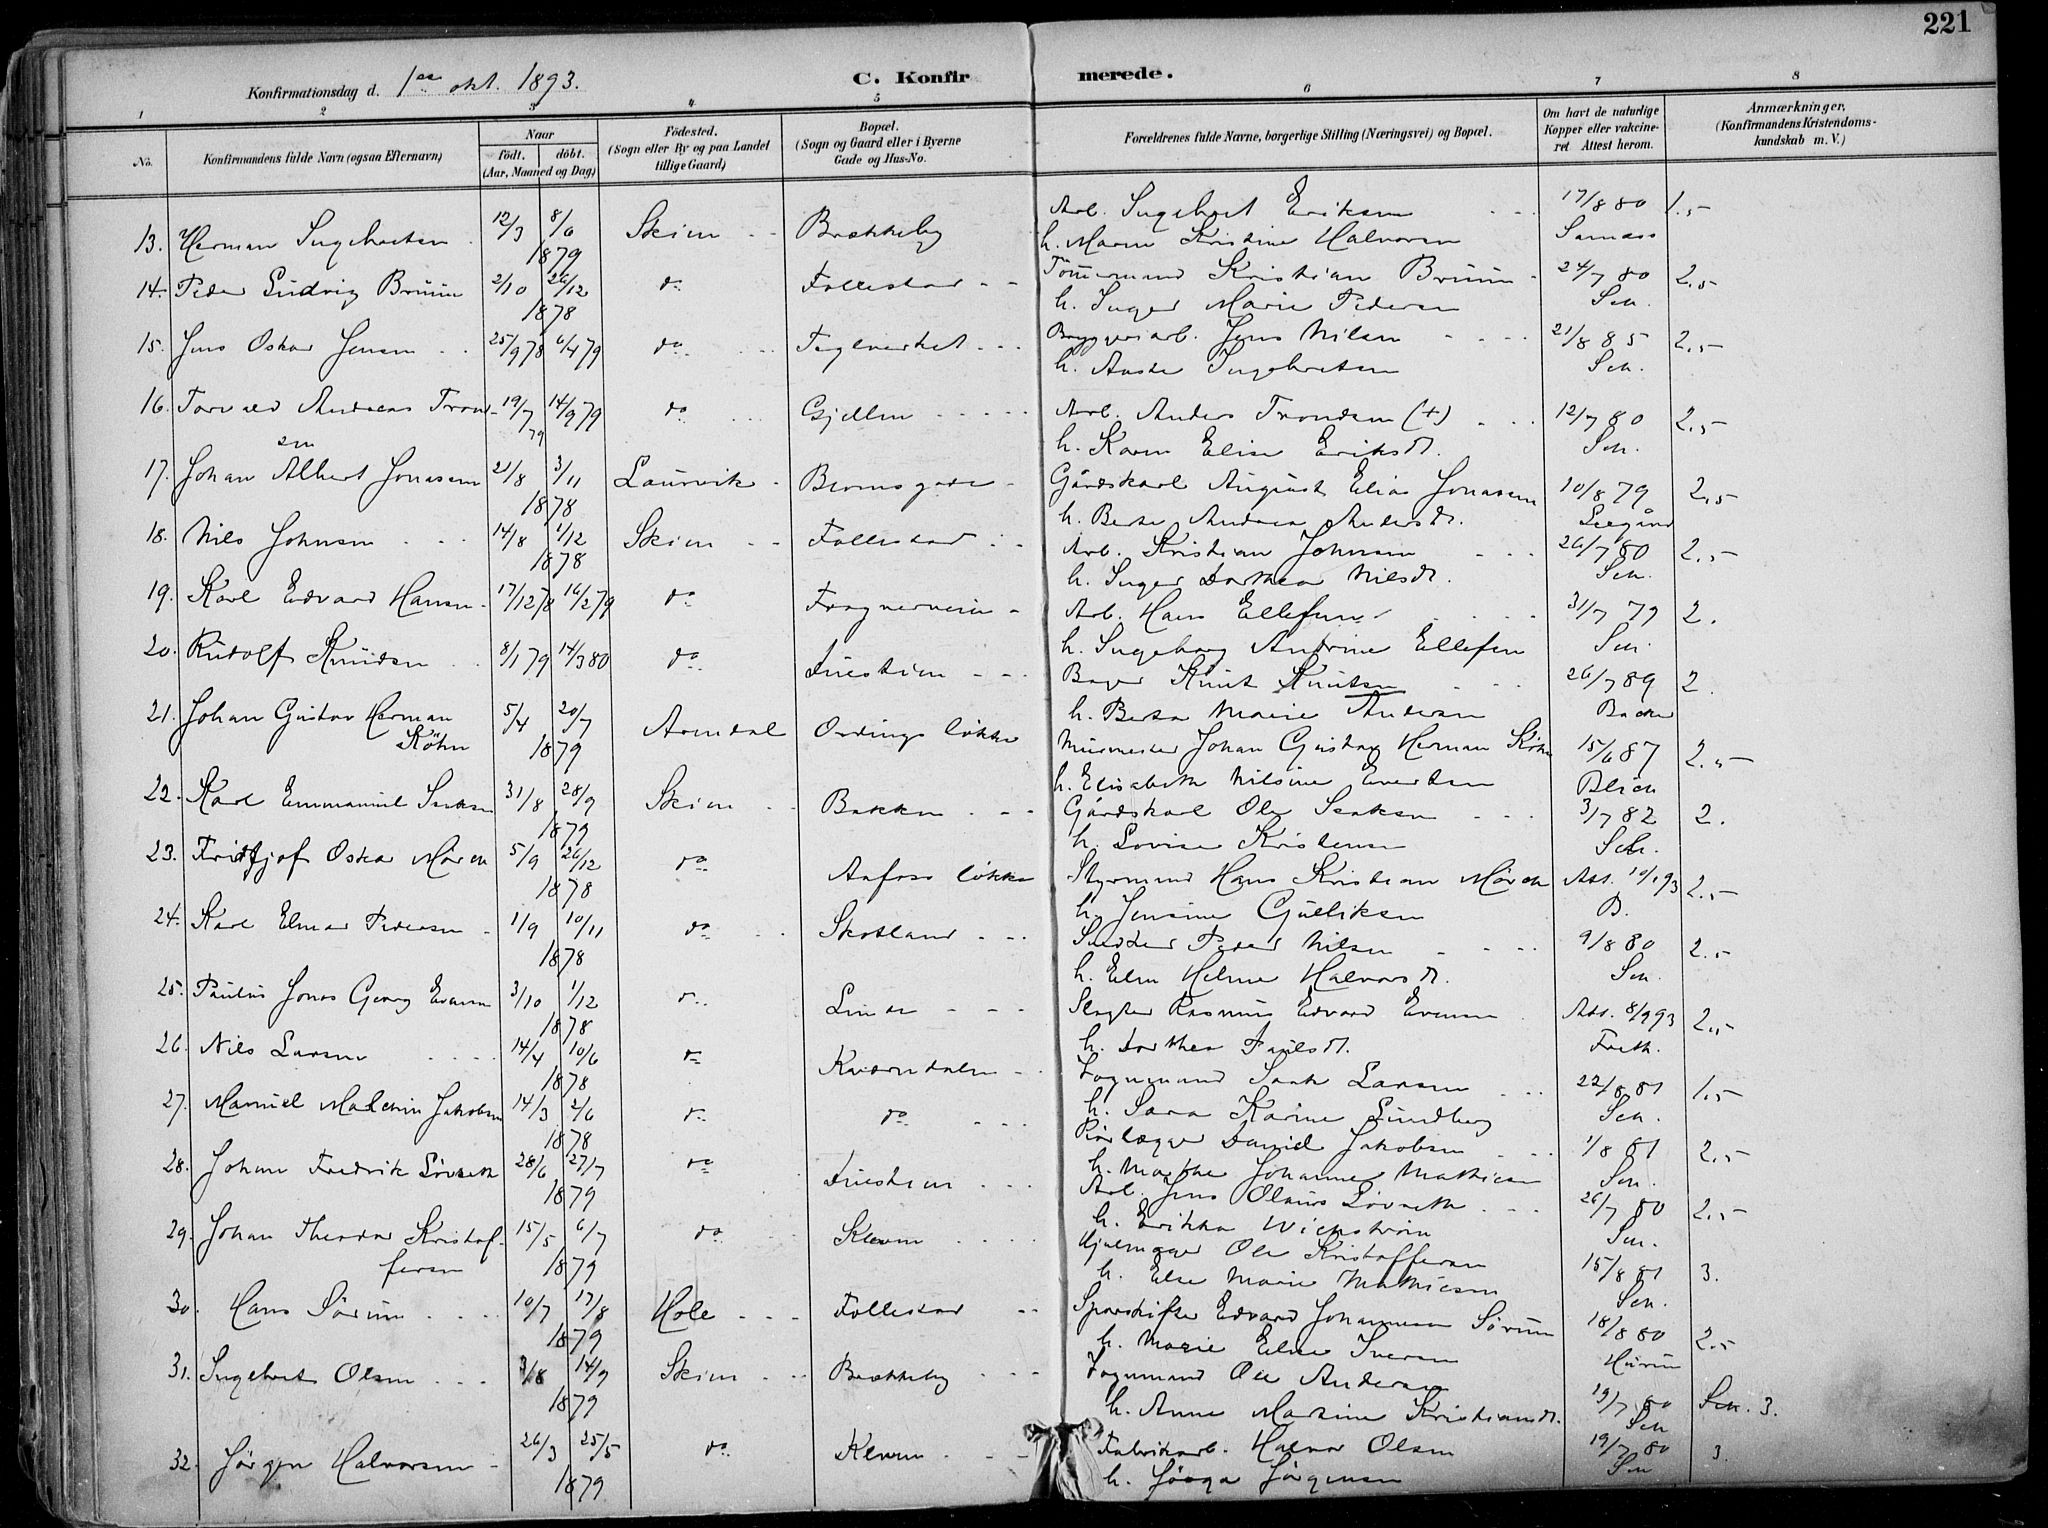 221
Konfirmationsdag d. 1ste okt. 1893. C. Konfirmerede.
1 2 3 4 5 6 7 8
No. Konfirmandens fulde Navn (ogsaa Efternavn) Naar født. døbt. (Aar, Maaned og Dag) Fødested. (Sogn eller By og paa Landet tillige Gaard) Bopæl. (Sogn og Gaard eller i Byerne Gade og Hus-No. Forældrenes fulde Navne, borgerlige Stilling (Næringsvei) og Bopæl. Om havt de naturlige Kopper eller vakcineret Attest herom. Anmærkninger, (Konfirmandens Kristendomskundskab m. V.)
13. Herman Ingebretsen 12/3 8/6 1879 Skien Brekkeby Arb. Ingebret Eriksen 17/8 80 1.5
h. Maren Kristine Halvorsen
14. Peder Ludvig Bruun 2/10 26/12 1878 do Follestad Tömermand Kristian Bruun 24/7 80 2.5
h. Inger Marie Pedersen Sch.
15. Jens Oskar Jensen 25/9 78 6/4 79 do Teglverket Bryggeriarb. Jens Nilsen 21/8 85 2.5
h. Aaste Ingebretsen Sch.
16. Torvald Andreas Trondsen 19/7 79 14/9 79 do Gjellen Arb. Anders Trondsen (+) 12/7 80 2.5
h. Karen Elise Eriksdt. Sch.
17. Johan Albert Jonasen 21/8 3/11 1878 Laurvik Gårdskarl August Elias Jonasen 10/8 79 2.5
h. Berte Andrea Andersdt.
18. Nils Johnsen 14/8 1/12 1878 Skien Follestad Arb. Kristian Johnsen 26/7 80 2.5
h. Inger Dorthea Nilsdt. Sch.
19. Karl Edvard Hansen 17/12 78 16/2 79 do Arb. Hans Ellefsen 31/7 79 2.
h. Ingeborg Andrine Ellefsen Sch.
20. Rudolf Knudsen 8/1 79 14/3 80 do Lieskien Bager Knut Knutsen 26/7 89 2.
h. Berta Marie Andersen Backer
21. Johan Gustav Herman Köhn 5/4 20/7 1879 Arendal Ordings løkke Murmester Johan Gustav Herman Köhn 15/6 87 2.5
h. Elisabeth Nilsine Evertsen Blich
22. Karl Emmanuel Isaksen 31/8 28/9 1879 Skien Bakken Gårdskarl Ole Isaksen 3/7 82 2.
h. Lovise Kristensen Sch.
23. Fridtjof Oskar Mørch 5/9 26/12 1878 do løkke Styrmand Hans Kristian Mørch Att. 19/1 93 2.5
h. Jensine Gulliksen B.
24. Karl Elmar Pedersen 1/9 10/11 1878 do Skotland Snedker Peder Nilsen 9/8 80 2.5
h. Elen Helene Halvorsdt. Sch.
25. Paulus Jonas Georg Evensen 3/10 1/12 1878 do Linde Slagter Rasmus Edvard Evensen Att. 8/9 93 2.5
h. Dorthea Paulsdt.
26. Nils Larsen 14/4 10/6 1878 do Kværndalen Vognmand Isak Larsen 22/8 81 1.5
h. Sara Karine Lundberg Sch.
27. Manuel Malchin Jakobsen 14/3 2/6 1878 do do Rørlægger David Jakobsen 1/8 81 2.5
h. Marthe Johanne Mathiesen Sch.
28. Johan Fredrik Løvseth 28/6 27/7 1879 do Lieskien Arb. Jens Olaus Løvseth 26/7 80 2.5
h. Erikka Wickstrøm Sch.
29. Johan Theodor Kristoffersen 15/5 6/7 1879 do Kleven Hjulmager Ole Kristoffersen 15/8 81 3.
h. Else Marie Mathiesen Sch.
30. Hans Sørum 10/7 17/8 1879 Hole Follestad Sporskifter Edvard Johannesen Sørum 18/8 80 2.5
h. Marie Elise Iversen
31. Ingebret Olsen 3/8 14/9 1879 Skien Brekkeby Vognmand Ole Andersen
h. Anne Martine Kristiansdt. 19/7 80 Sch. 3.
Sch
32. Jørgen Halvorsen 26/3 25/5 1879 do Kleven Fabrikarb. Halvor Olsen 19/7 80 3.
h. Jørgensen Sch